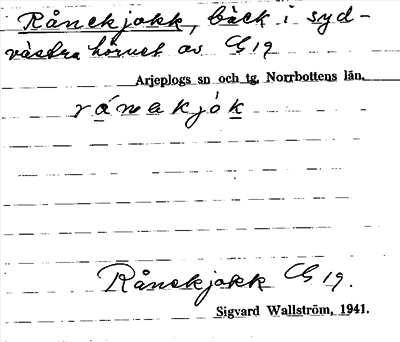 Rånekjokk, bäck i syd-
västra hörnet av G 19
Arjeplogs sn och tg, Norrbottens län.
ránakjók
Rånekjokk G 19.
Sigvard Wallström, 1941.